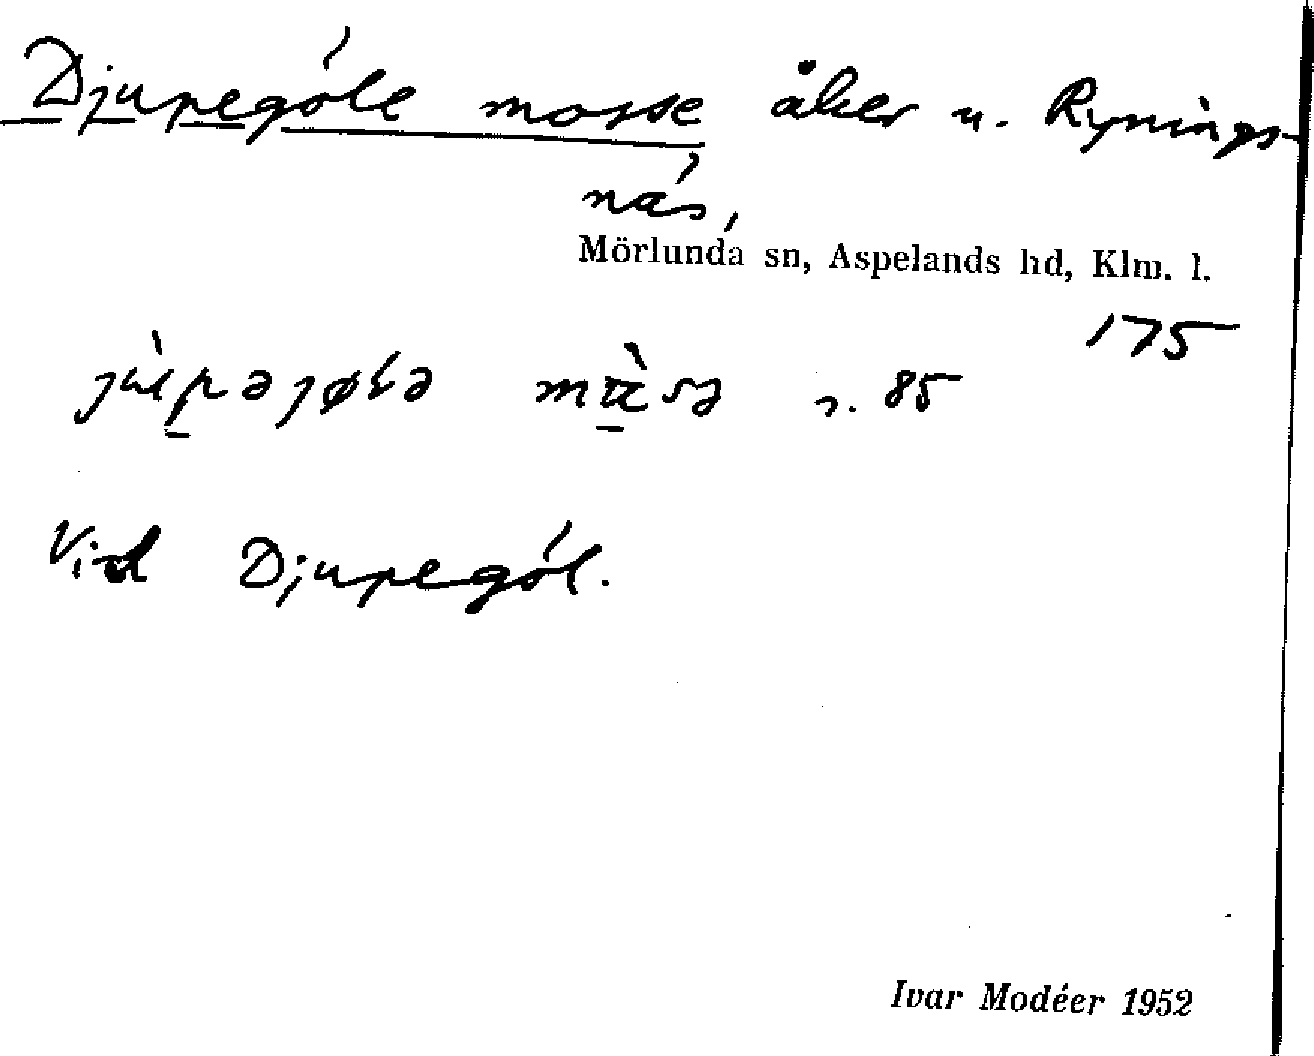 Djupególe mosse åker u. Rynings-
nás,
Mörlunda sn, Aspelands hd, Klm. l.
175
s. 85
Vid Djupegól.
Ivar Modéer 1952